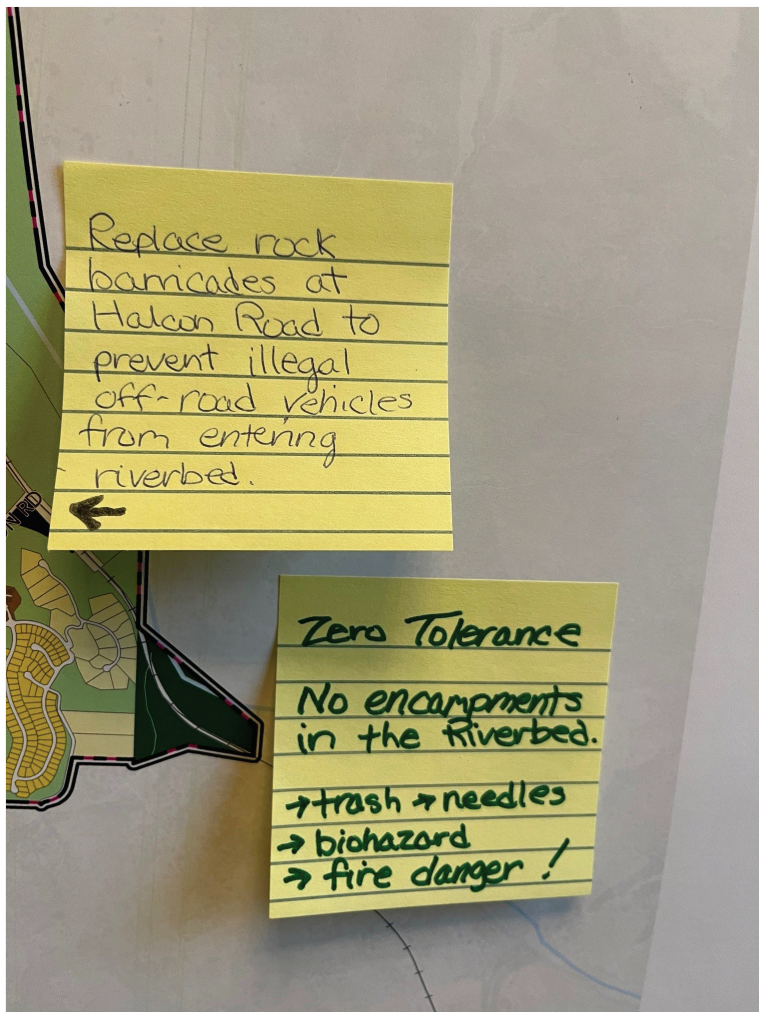 Replace rock
barricades at
Halcon Road to
prevent illegal
off-road vehicles
from entering
riverbed.
←
N RD
Zero Tolerance
No encampments
in the Riverbed.
→trash → needles
→ biohazard
→ fire danger !